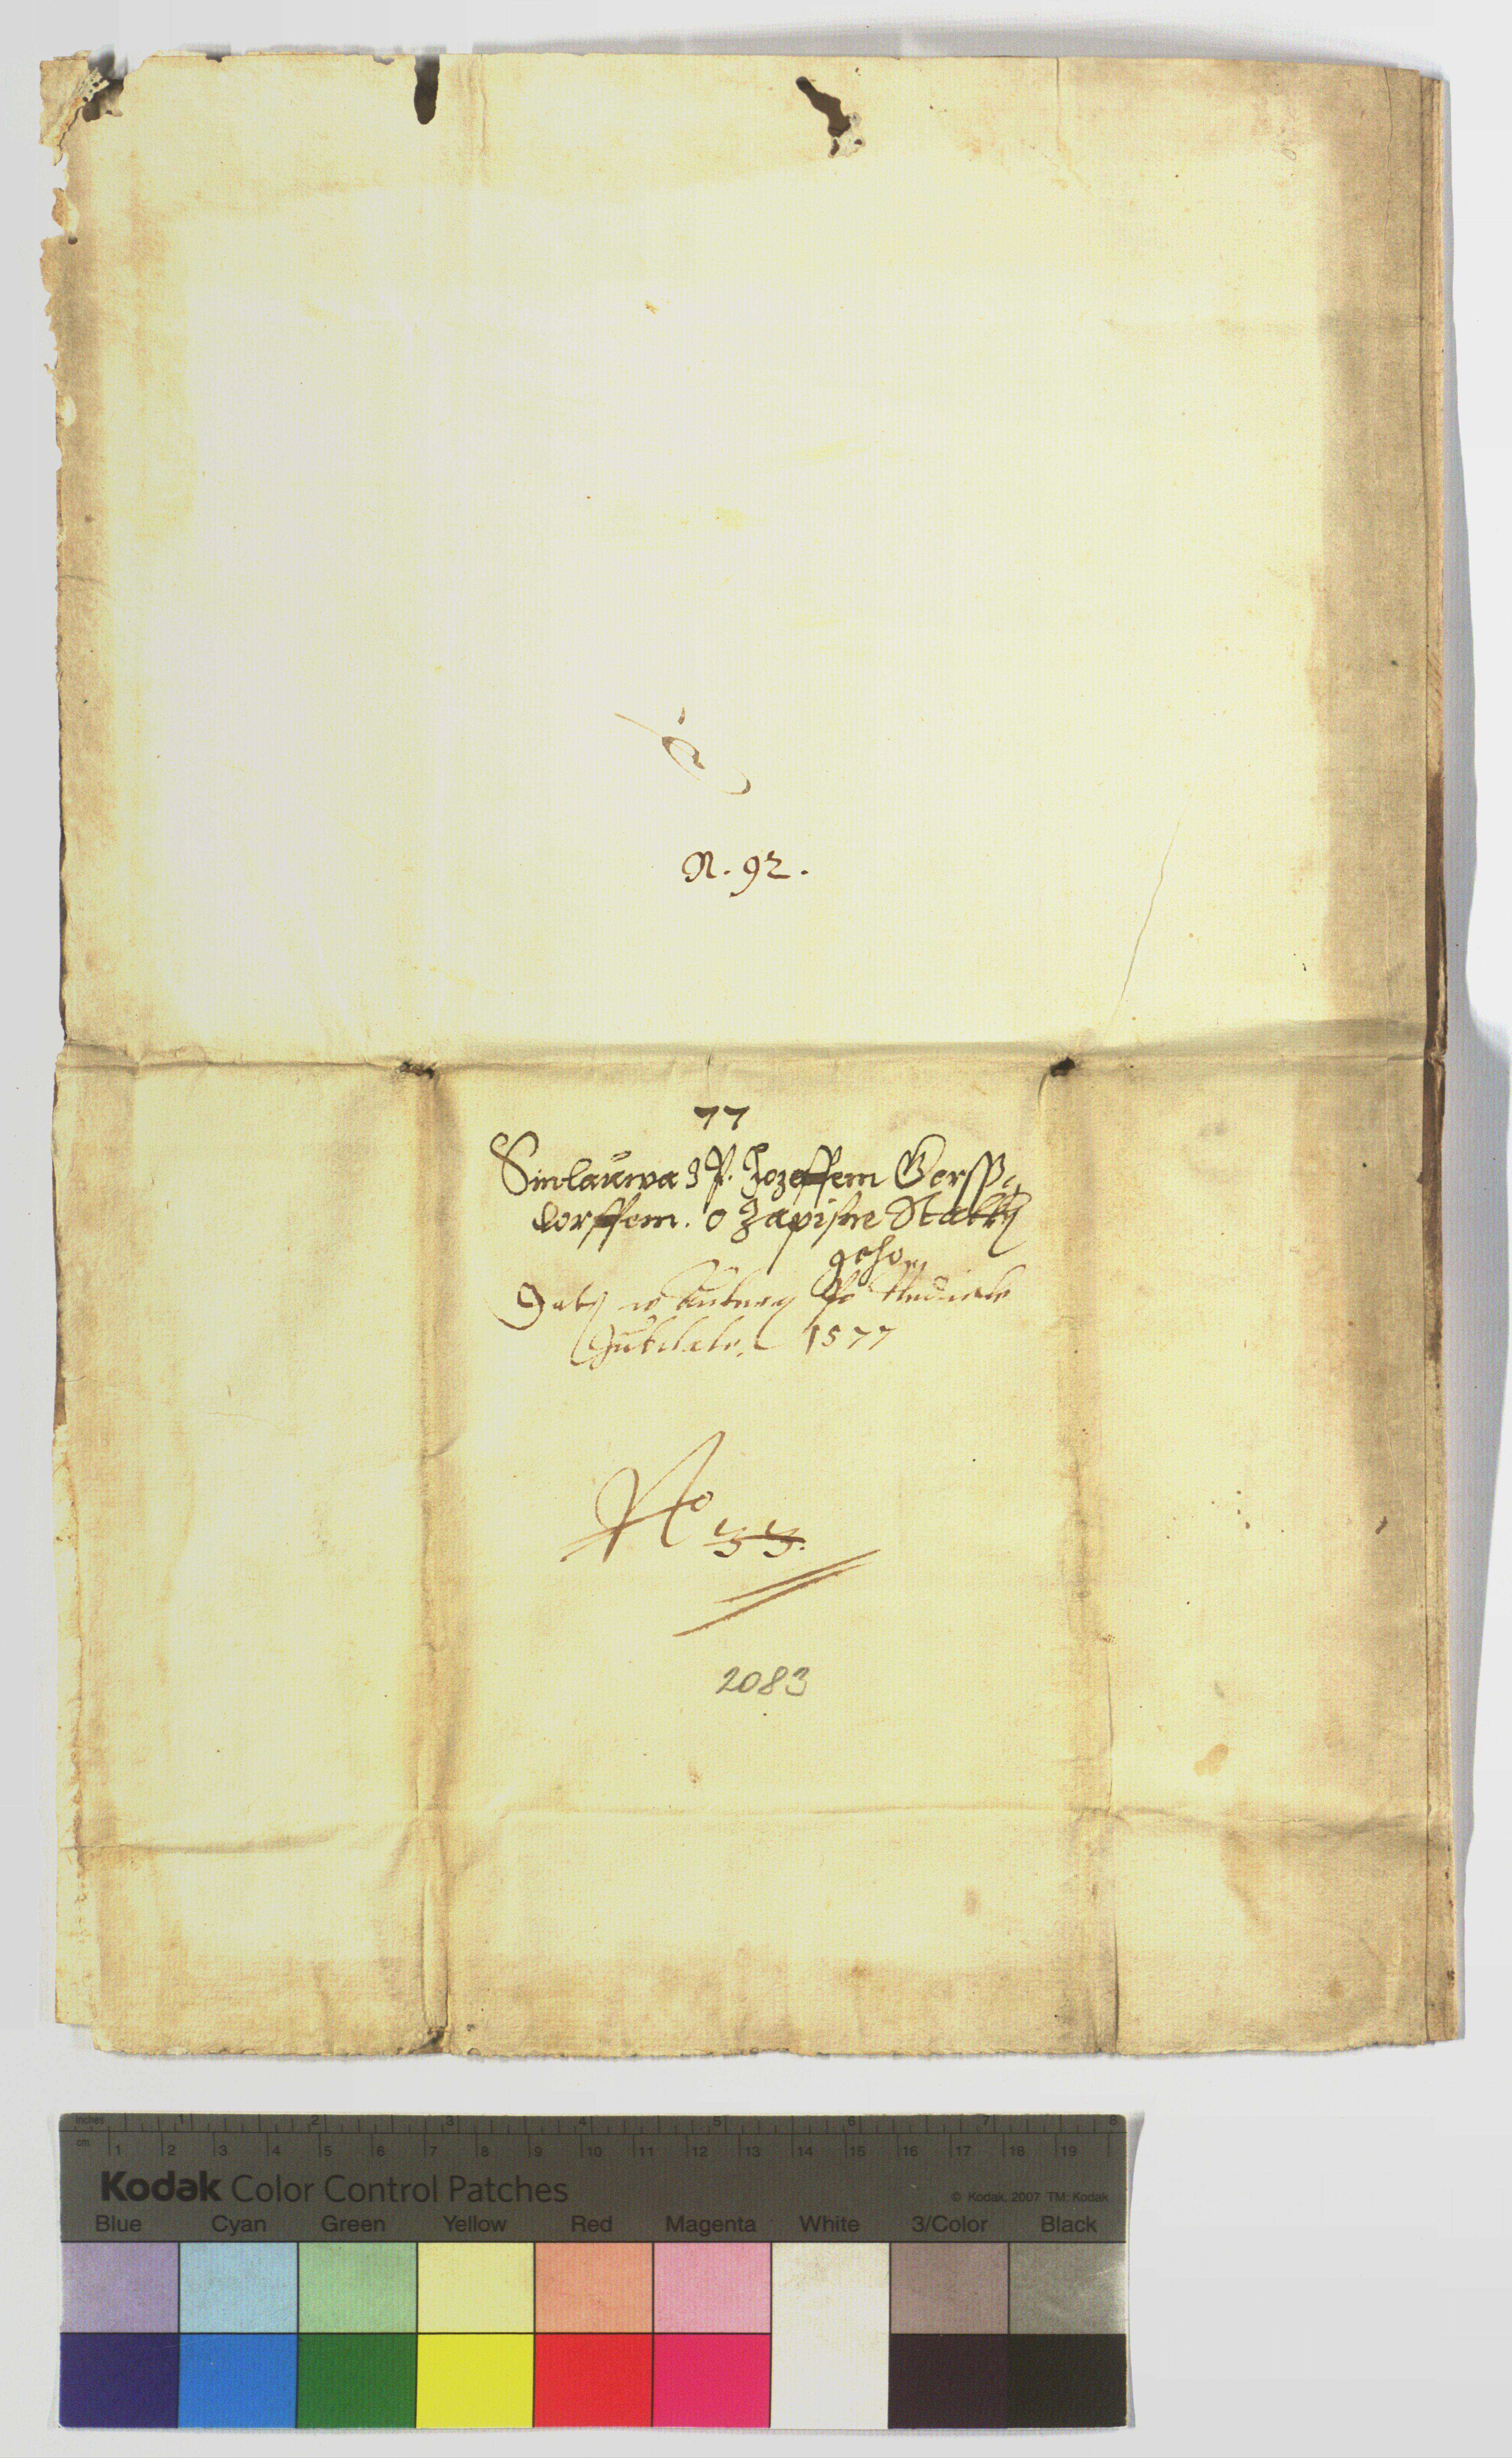 N. 92.
77
Smlauwa z P. Jozeffem Gerssd
dorffem. o Zapisne Statky
geho
Datg w po Nedicele
Jubilate. 1577
No
2083
inches 1 2 3 4 5 6 7 8
cm 1 2 3 4 5 6 7 8 9 10 11 12 13 14 15 16 17 18 19
Kodak Color Control Patches
© Kodak, 2007 TM: Kodak
Blue Cyan Green Yellow Red Magenta White 3/Color Black